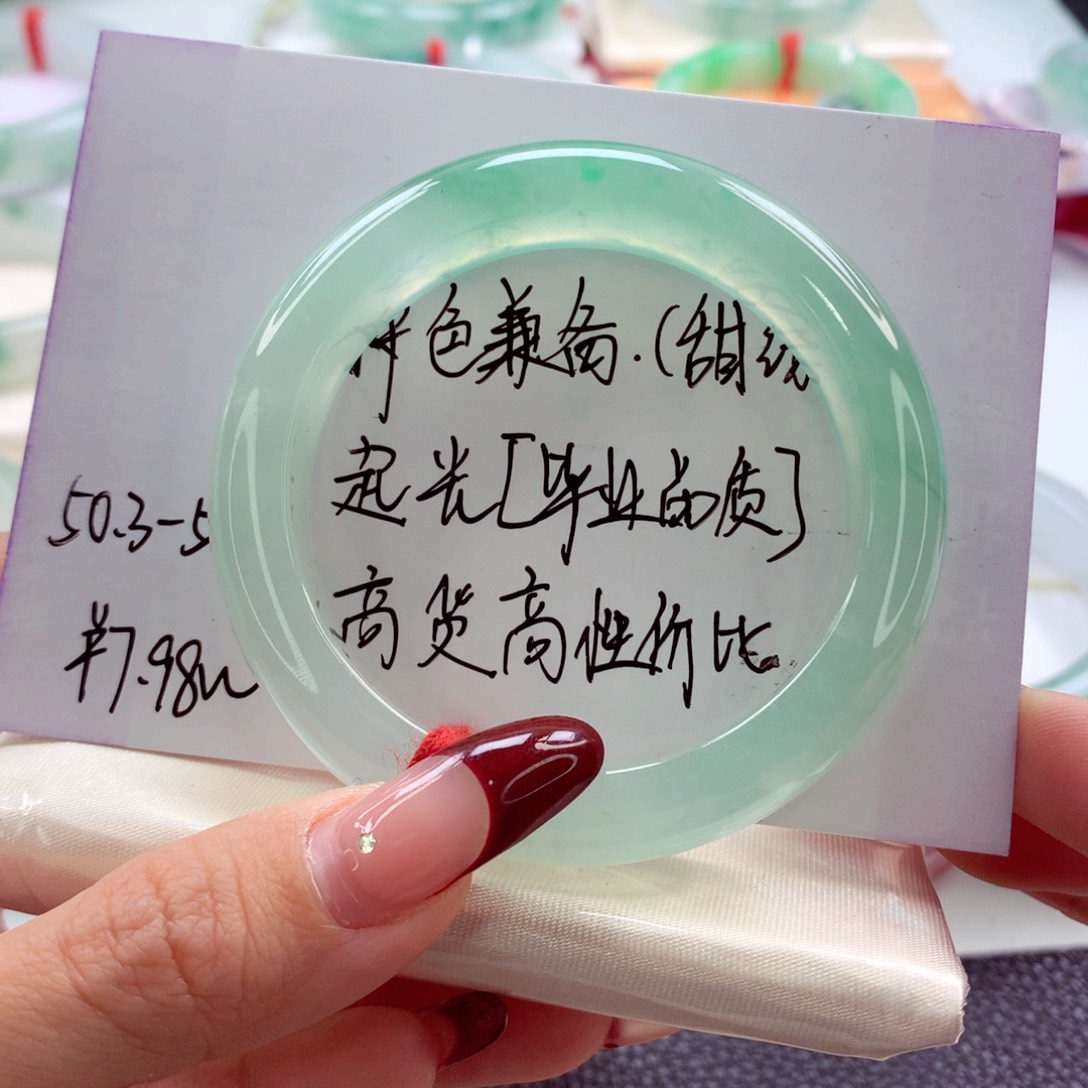 色兼备.(甜绿
起光[毕业品质]
50.3-5
高货高性价比
¥7.98w